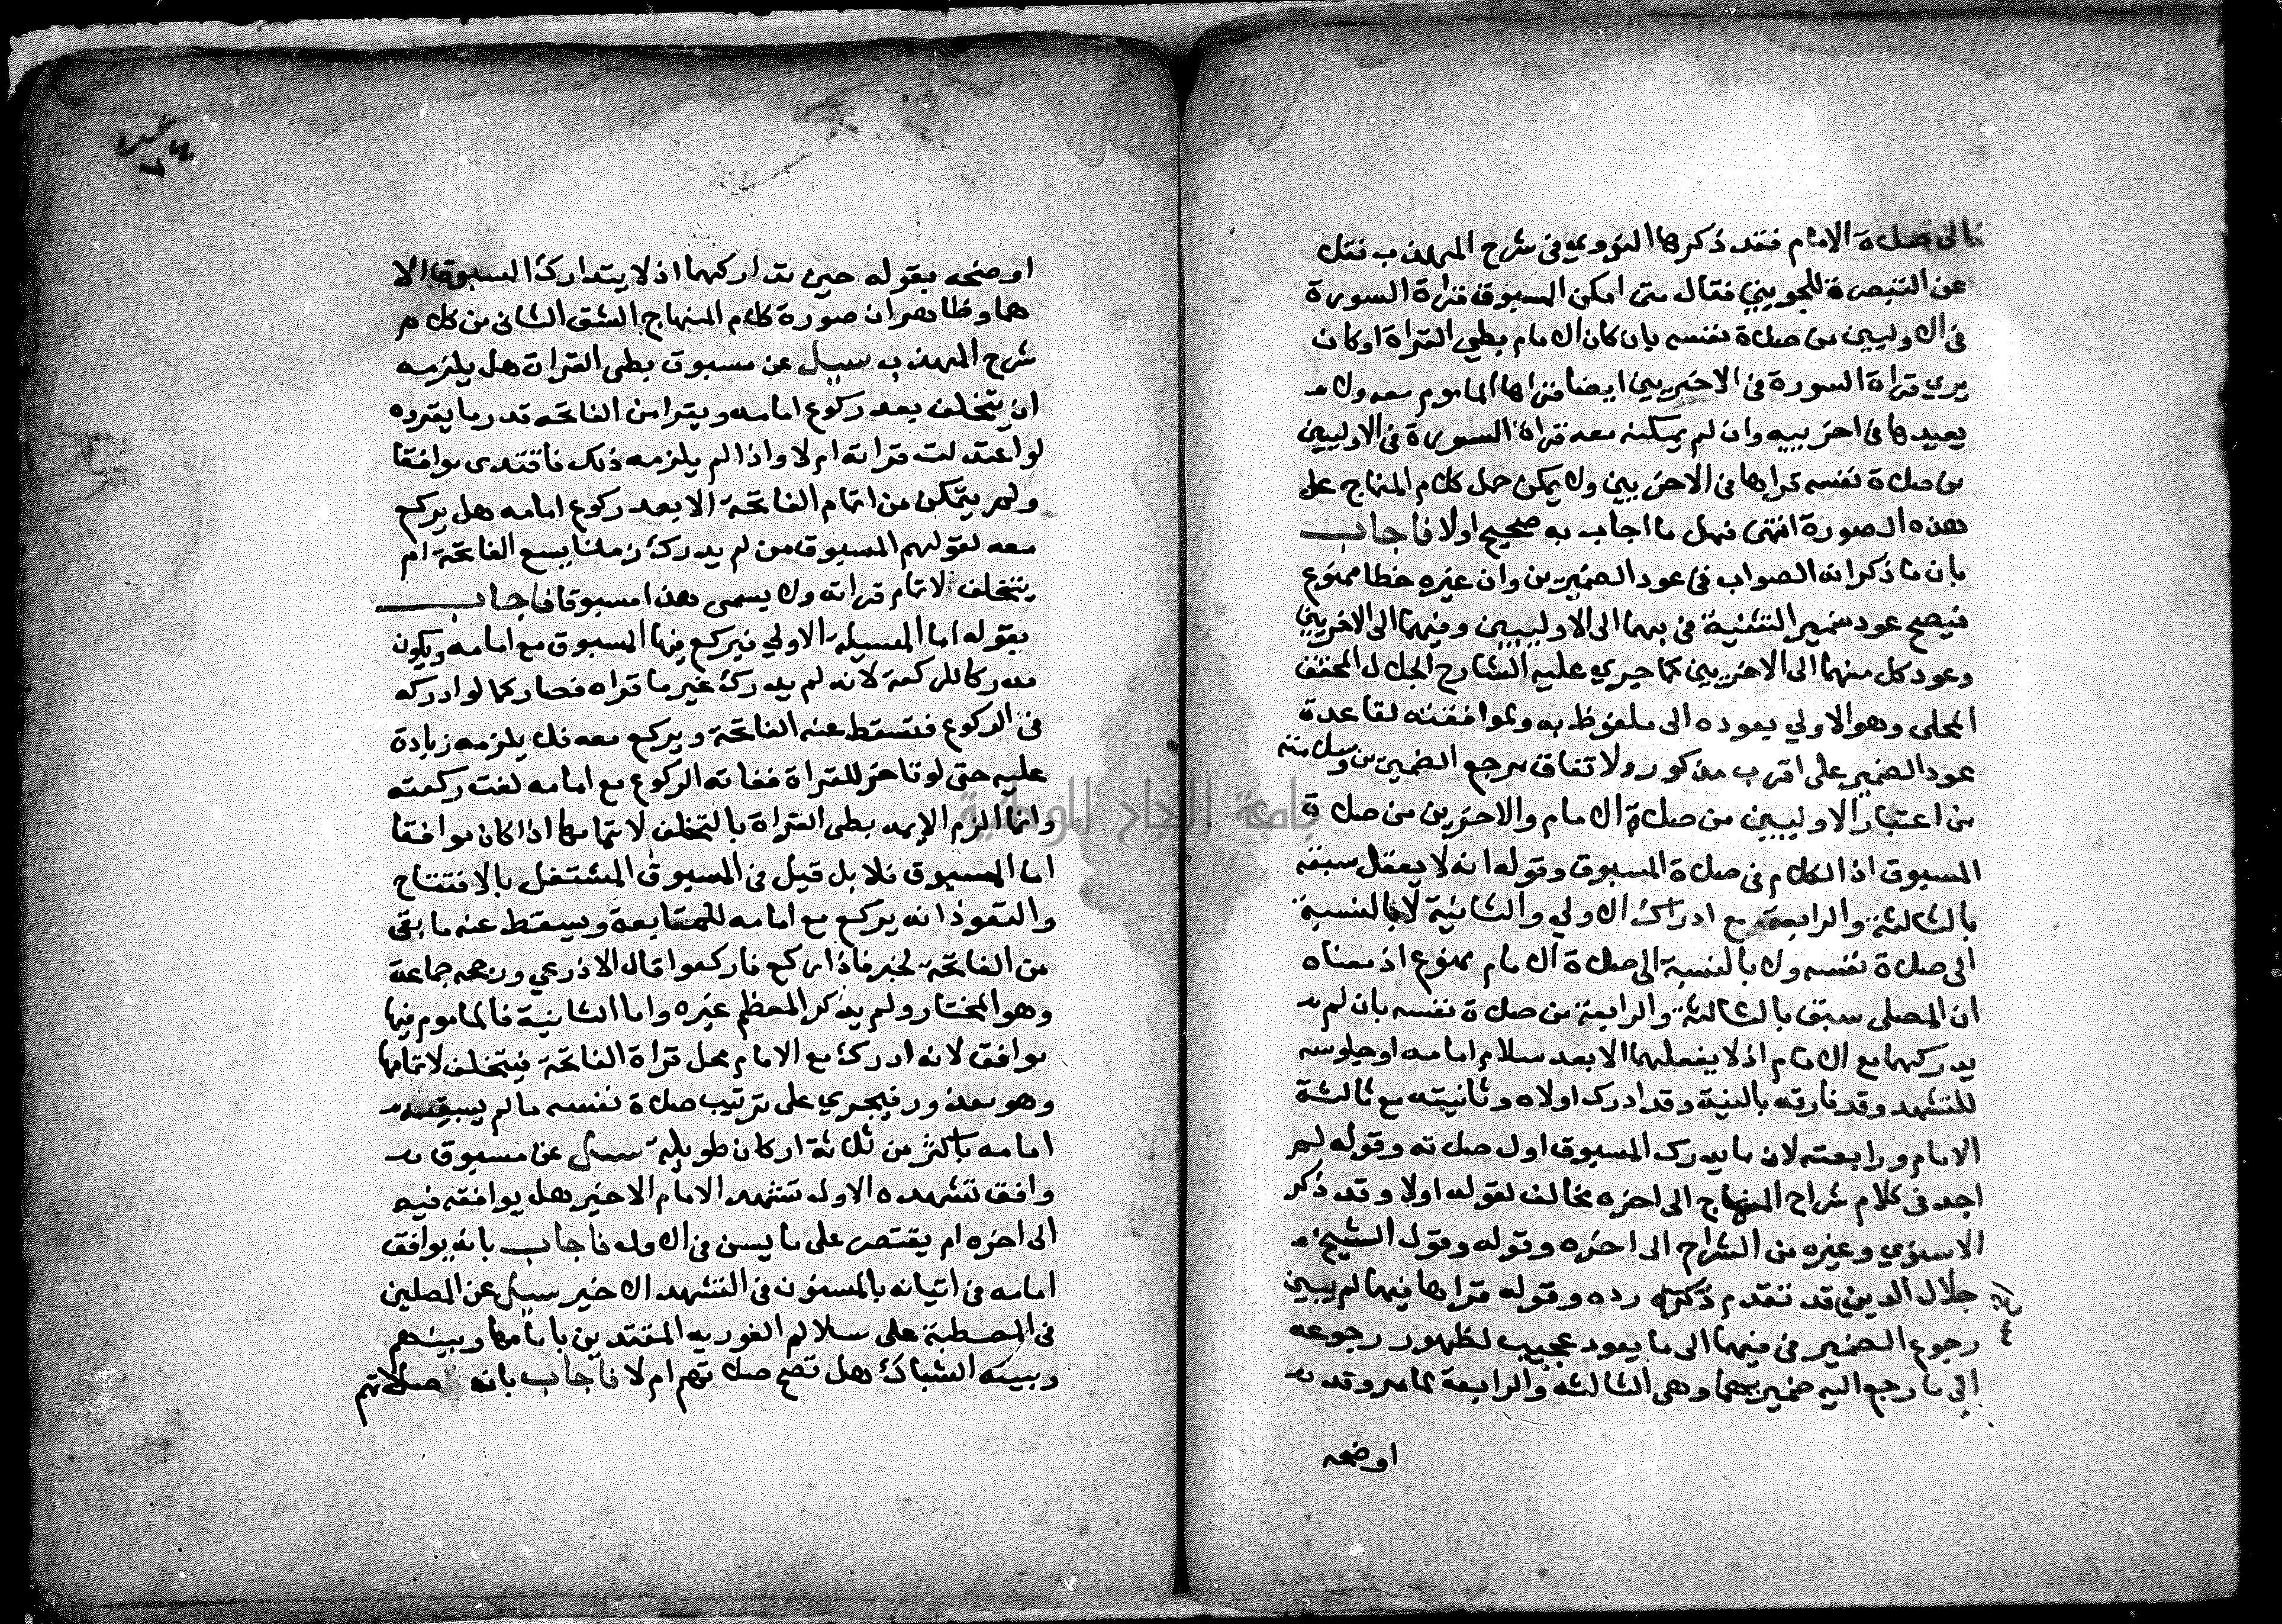 الى صلاة الامام فقد ذكرها النووي في شرح المهذب فقل
عن التبصرة للجويني فقال متى امكن المسبوق قراة السورة
في الاوليين من صلاة نفسه بان كان الامام بطي القراة او كان
يري قراة السورة في الاخريين ايضا قراها الماموم معه ولا
يعيدها في اخرييه وان لم يمكنه معه قراة السورة في الاوليين
من صلاة نفسه قراها في الاخريين ولا يمكن حمل كلام المنهاج على
هذه الصورة انتهى فهل ما اجاب به صحيح اولا فاجاب
بان ما ذكر انه الصواب في عود الضميرين وان غيره خطا ممنوع
فيصح عود ضمير التثنية في بهما الى الاوليين وفيهما الى الاخريين
وعود كل منهما الى الاخريين كما جري عليه الشارح الجلال المحقق
المحلى وهو الاولي يعوده الى ملفوظ به ولموافقته لقاعدة
عود الضمير على اقرب مذكور ولاتفاق مرجع الضميرين وسلامته
من اعتبار الاوليين من صلاة الامام والاخرين من صلاة
المسبوق اذ الكلام في صلاة المسبوق وقوله انه لا يعقل سبقه
بالثالثة والرابعة مع ادراك الاولي والثانية لا بالنسبة
الى صلاة نفسه ولا بالنسبة الى صلاة الامام ممنوع اذ معناه
ان المصلى سبق بالثالثة والرابعة من صلاة نفسه بان لم
يدركهما مع الامام اذ لا يفعلهما الا بعد سلام امامه او جلوسه
للتشهد وقد فارقه بالنية وقد ادرك اولاه وثانيته مع ثالثة
الامام ورابعته لان ما يدرك المسبوق اول صلاته وقوله لم
اجد في كلام شراح المنهاج الى اخره مخالف لقوله اولا وقد ذكر
الاسنوي وغيره من الشراح الى اخره وقوله وقول الشيخ
جلال الدين قد تقدم ذكره رده وقوله قراها فيهما لم يبين
رجوع الضمير في فيهما الى ما يعود عجيب لظهور رجوعه
الى ما رجع اليه ضمير بهما وهى الثالثة والرابعة كما مر وقد
اوضحه
اوضحه بقوله حين تداركهما اذ لا يتدارك المسبوق الا
هما وظاهر ان صورة كلام المنهاج الشق الثانى من كلام
شرح المهذب سيل عن مسبوق بطى القراة هل يلزمه
ان يتخلف بعد ركوع امامه ويقرا من الفاتحة قدر ما يقروه
لو اعتدلت قراته ام لا واذا لم يلزمه ذلك فاقتدى موافقا
ولم يتمكن من اتمام الفاتحة الا بعد ركوع امامه هل يركع
معه لقولهم المسبوق من لم يدرك زمنا يسع الفاتحة ام
يتخلف لاتمام قراته ولا يسمى هذا مسبوقا فاجاب
بقوله اما المسيلة الاولي فيركع فيها المسبوق مع امامه ويكون
مدركا للركعة لانه لم يدرك غير ما قراه فصار كما لو ادركه
في الركوع فتسقط عنه الفاتحة ويركع معه فلا يلزمه زيادة
عليه حتى لو تاخر للقراة ففاته الركوع مع امامه لغت ركعته
وانما الزم الايمه بطى القراة بالتخلف لاتمامها اذا كان موافقا
اما المسبوق فلا بل قيل في المسبوق المشتغل بالافتتاح
والتعوذ انه يركع مع امامه للمتابعة ويسقط عنه ما بقى
من الفاتحة لخبر فاذا ركع فاركعوا قال الاذرعي ورجحه جماعة
وهو المختار ولم يذكر المعظم غيره واما الثانية فالماموم فيها
موافق لانه ادرك مع الامام محل قراة الفاتحة فيتخلف لاتمامها
وهو معذور فيجري على ترتيب صلاة نفسه ما لم يسبقه
امامه باكثر من ثلاثة اركان طويلة سيل عن مسبوق
وافق تشهده الاول تشهد الامام الاخير هل يوافقه فيه
الى اخره ام يقتصر على ما يسن في الاول فاجاب بانه يوافق
امامه في اتيانه بالمسنون في التشهد الاخير سيل عن المصلين
في المصطبة على سلالم الغوريه المقتدين بامامها وبينهم
وبينه الشباك هل تصح صلاتهم ام لا فاجاب بانه صلاتهم
جامعة النجاح الوطنية